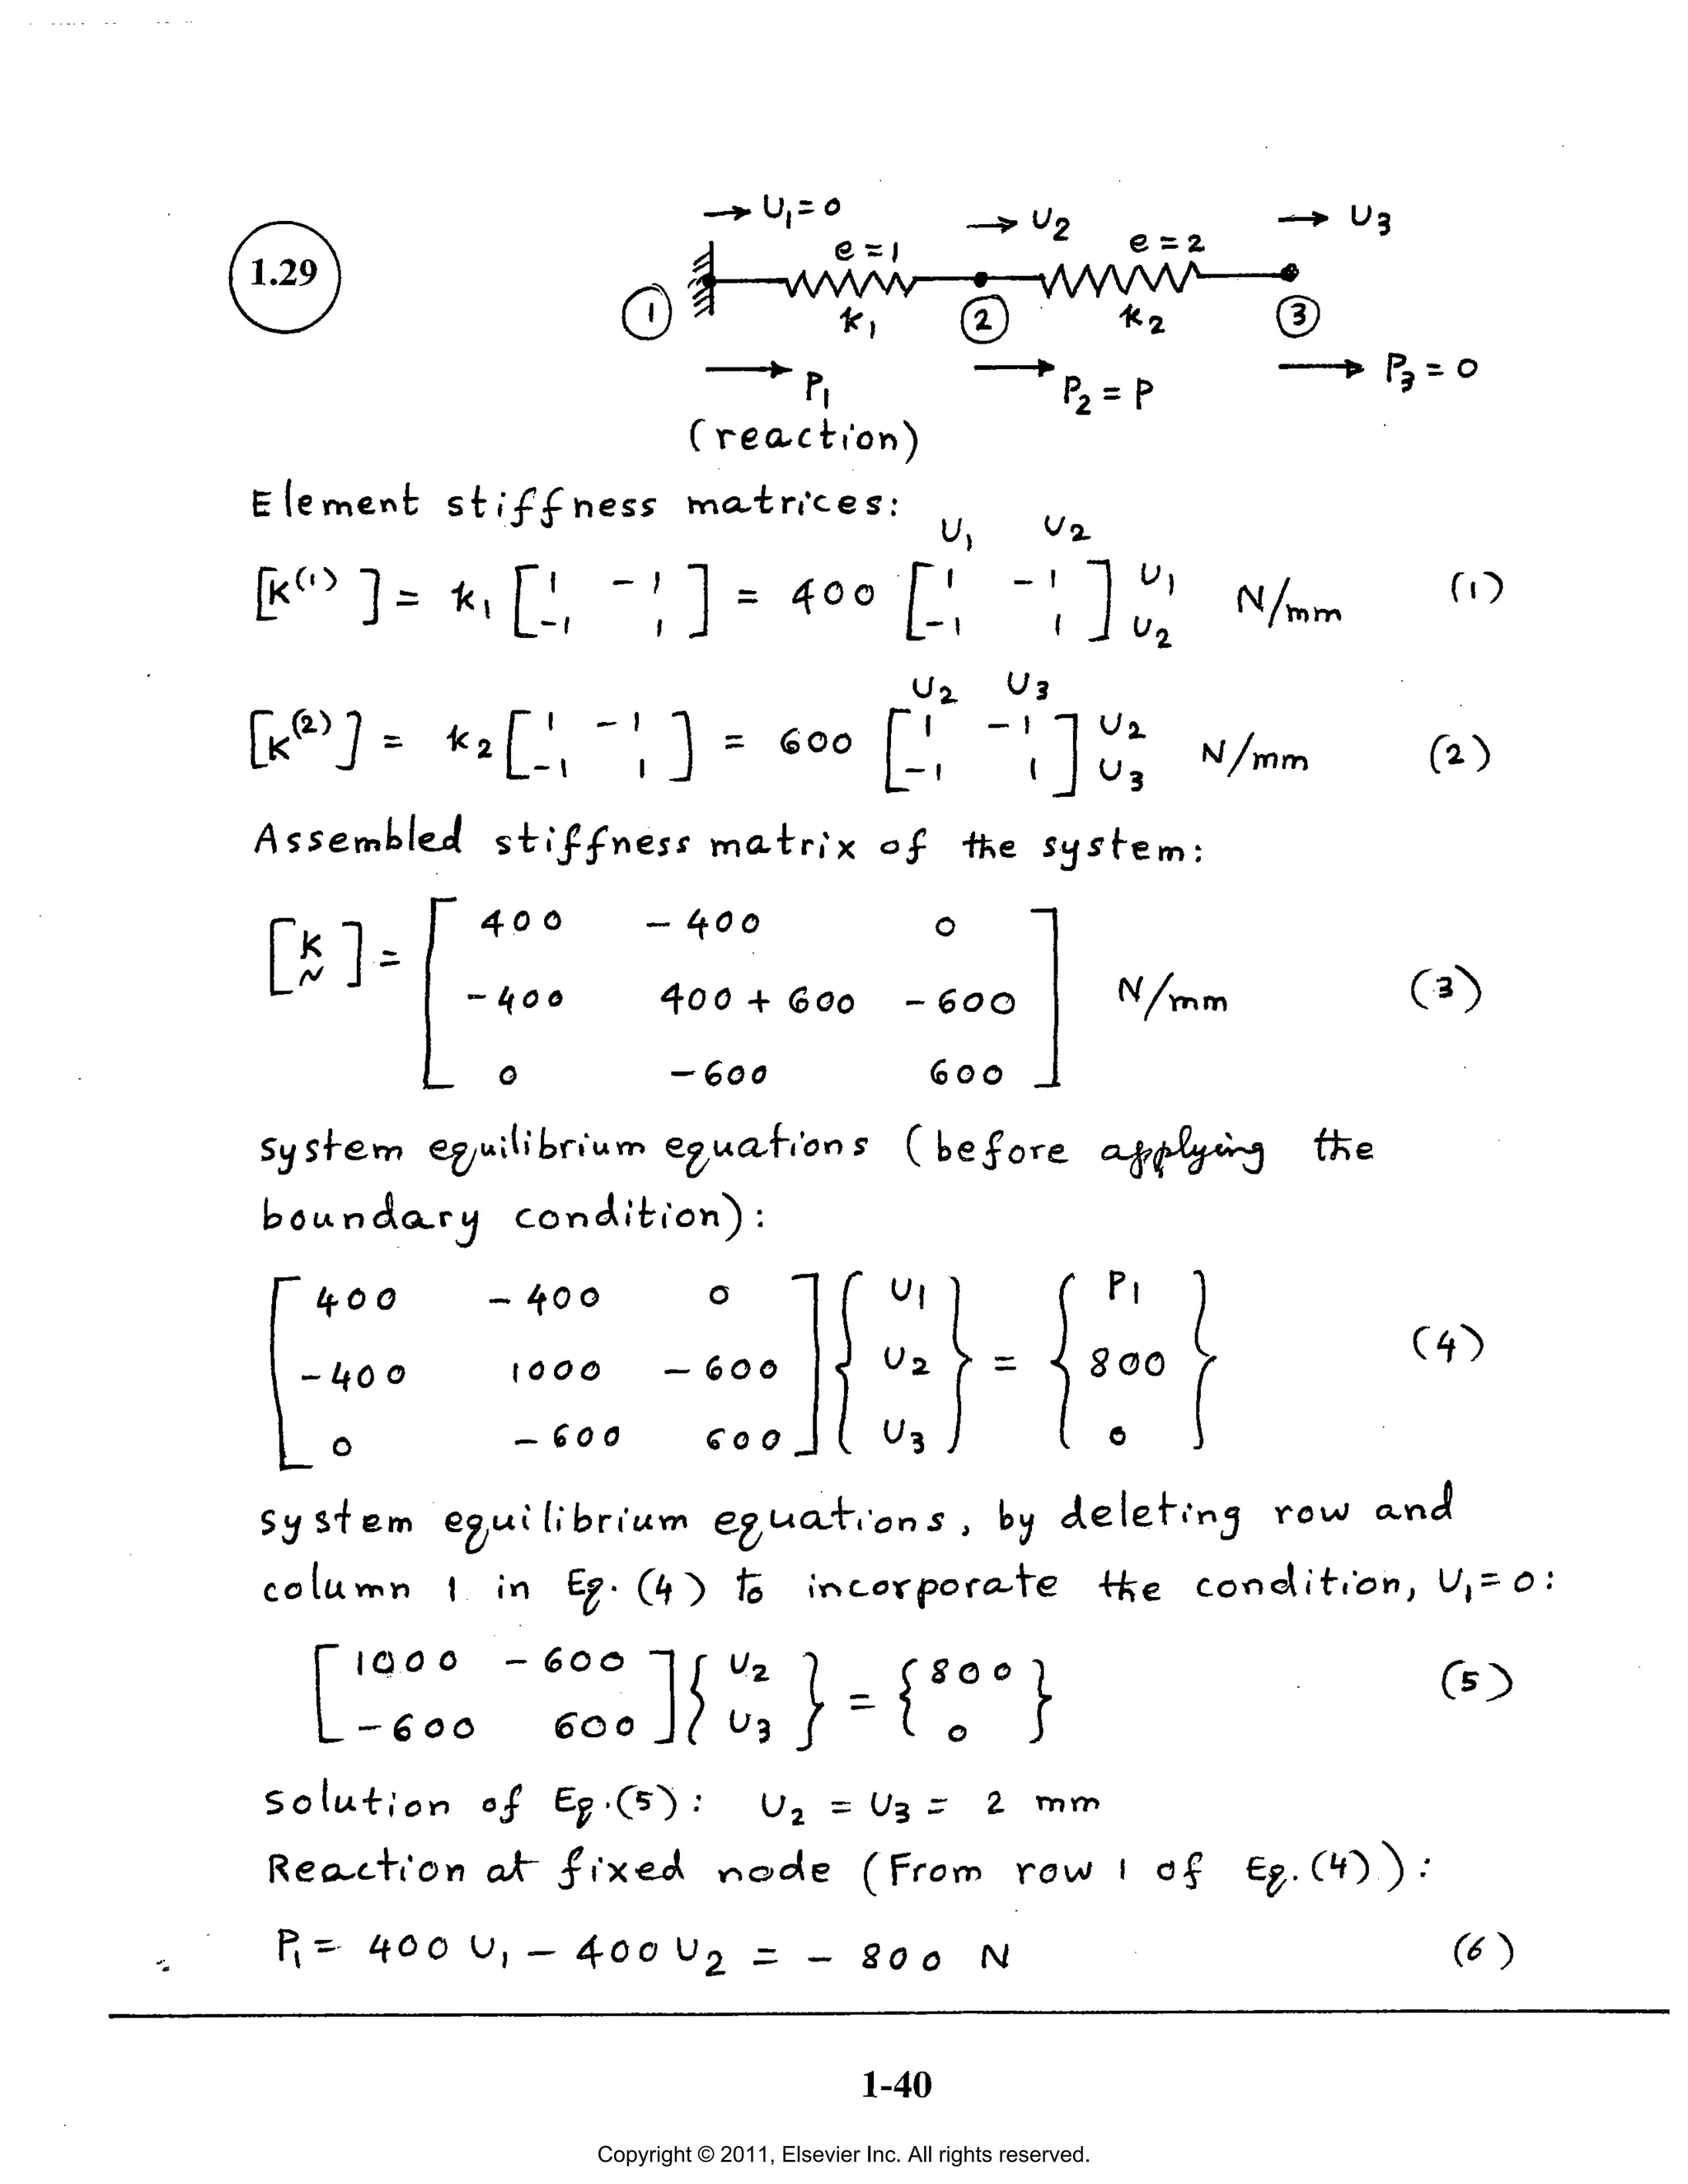 → U₁ = 0 → U₂ → U₃
1.29
e = 1 e = 2
① k₁ ② k₂ ③
→ P₁ → P₂ = P → P₃ = 0
(reaction)
Element stiffness matrices:
U₁ U₂
[K⁽¹⁾] = k₁ [1 -1; -1 1] = 400 [1 -1; -1 1] U₁ U₂ N/mm (1)
U₂ U₃
[K⁽²⁾] = k₂ [1 -1; -1 1] = 600 [1 -1; -1 1] U₂ U₃ N/mm (2)
Assembled stiffness matrix of the system:
400 -400 0
[K̰] = -400 400 + 600 -600 N/mm (3)
0 -600 600
system equilibrium equations (before applying the
boundary condition):
400 -400 0 U₁ P₁
-400 1000 -600 U₂ = 800 (4)
0 -600 600 U₃ 0
system equilibrium equations, by deleting row and
column 1 in Eq. (4) to incorporate the condition, U₁ = 0:
1000 -600 U₂ = 800 (5)
-600 600 U₃ 0
Solution of Eq. (5): U₂ = U₃ = 2 mm
Reaction at fixed node (From row 1 of Eq. (4)):
P₁ = 400 U₁ - 400 U₂ = - 800 N (6)
1-40
Copyright © 2011, Elsevier Inc. All rights reserved.